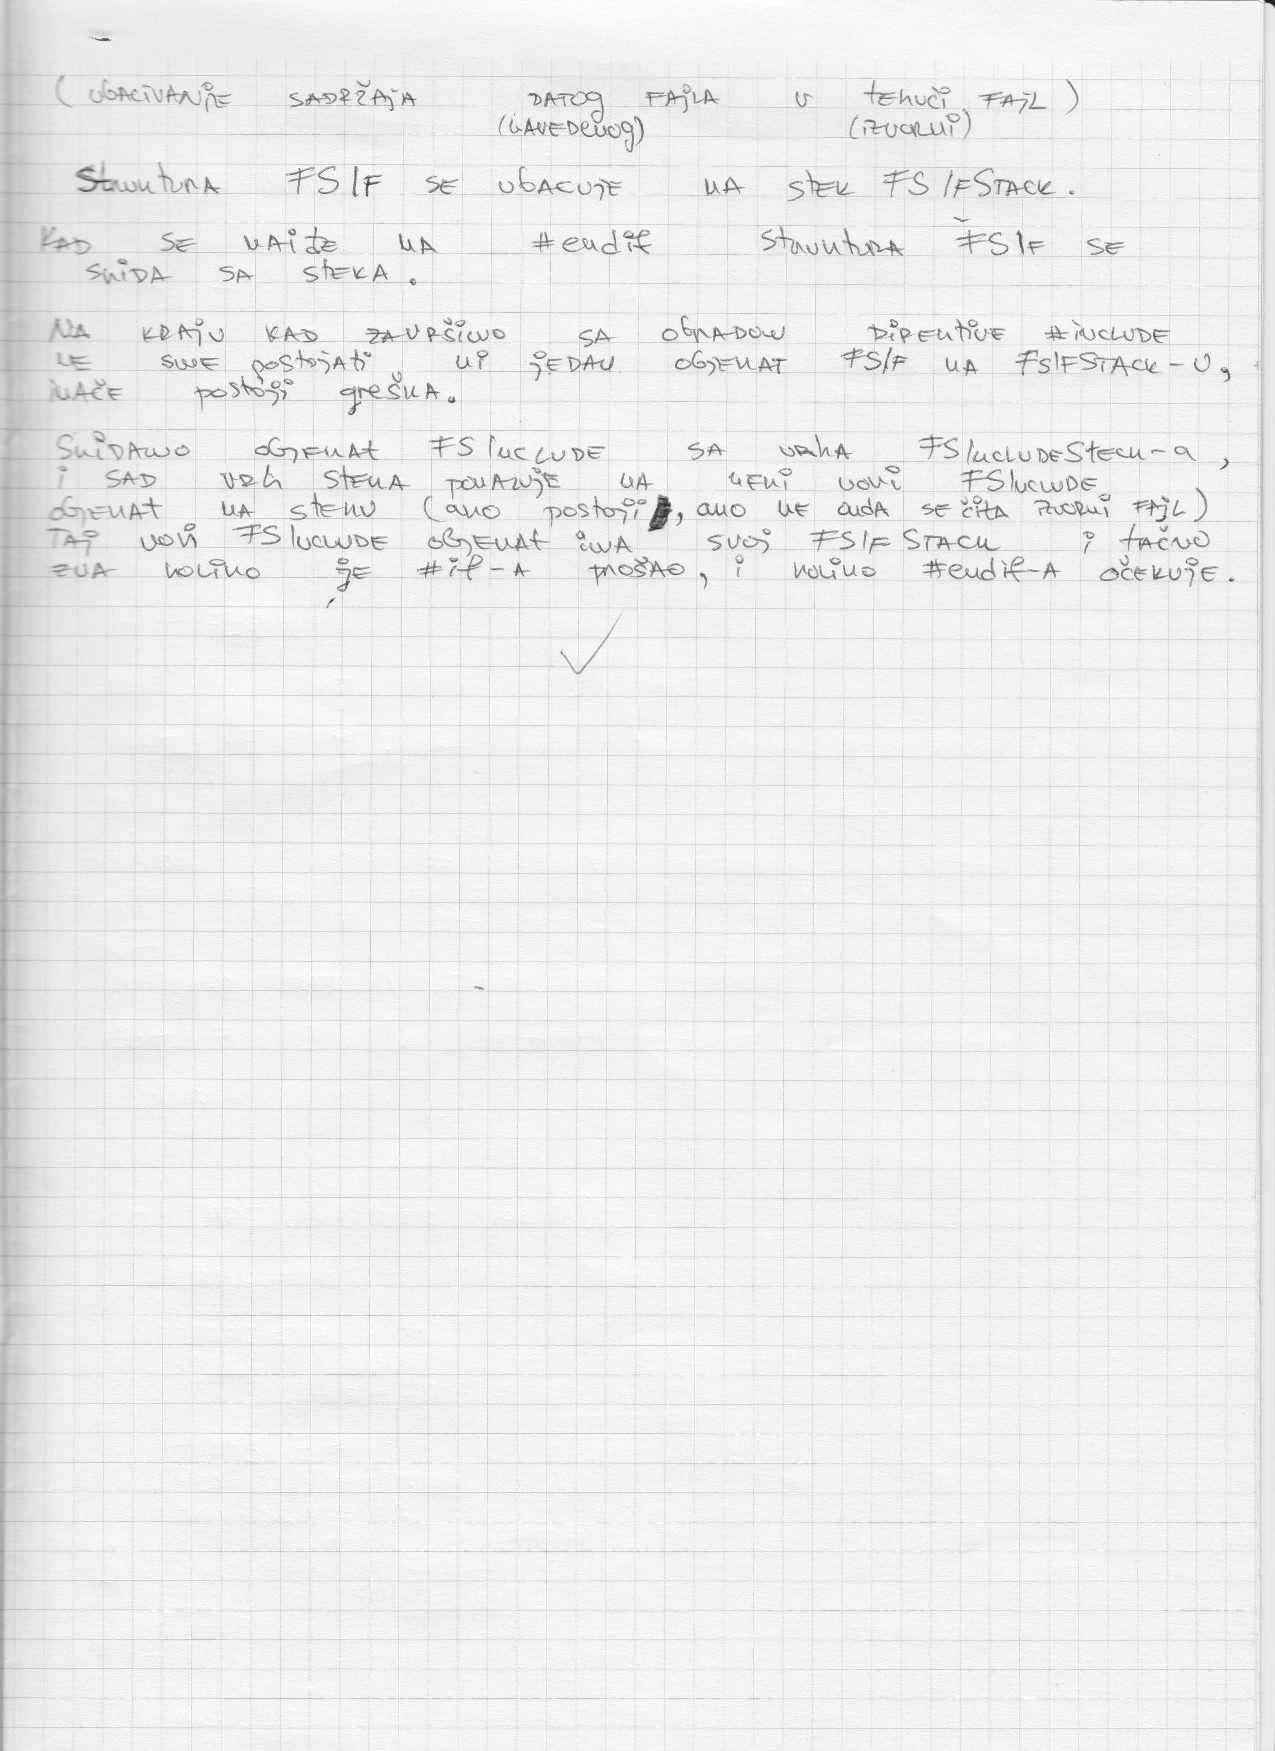 (UBACIVANJE SADRŽAJA DATOG FAJLA U TEKUĆI FAJL)
(NAVEDENOG) (IZVORNI)
Struktura FSIF SE UBACUJE NA STEK FSIFSTACK.
KAD SE NAIĐE NA #endif STRUKTURA FSIF SE
SKIDA SA STEKA.
NA KRAJU KAD ZAVRŠIMO SA OBRADOM DIREKTIVE #include
NE SME POSTOJATI NI JEDAN OBJEKAT FSIF NA FSIFSTACK-U,
INAČE POSTOJI GREŠKA.
SKIDAMO OBJEKAT FSINCLUDE SA VRHA FSINCLUDESteck-a,
I SAD VRH STEKA POKAZUJE NA NEKI NOVI FSINCLUDE
OBJEKAT NA STEKU (AKO POSTOJI, AKO NE ONDA SE ČITA IZVORNI FAJL)
TAJ NOVI FSINCLUDE OBJEKAT IMA SVOJ FSIFSTACK I TAČNO
ZNA KOLIKO JE #if-A PROŠAO, I KOLIKO #endif-A OČEKUJE.